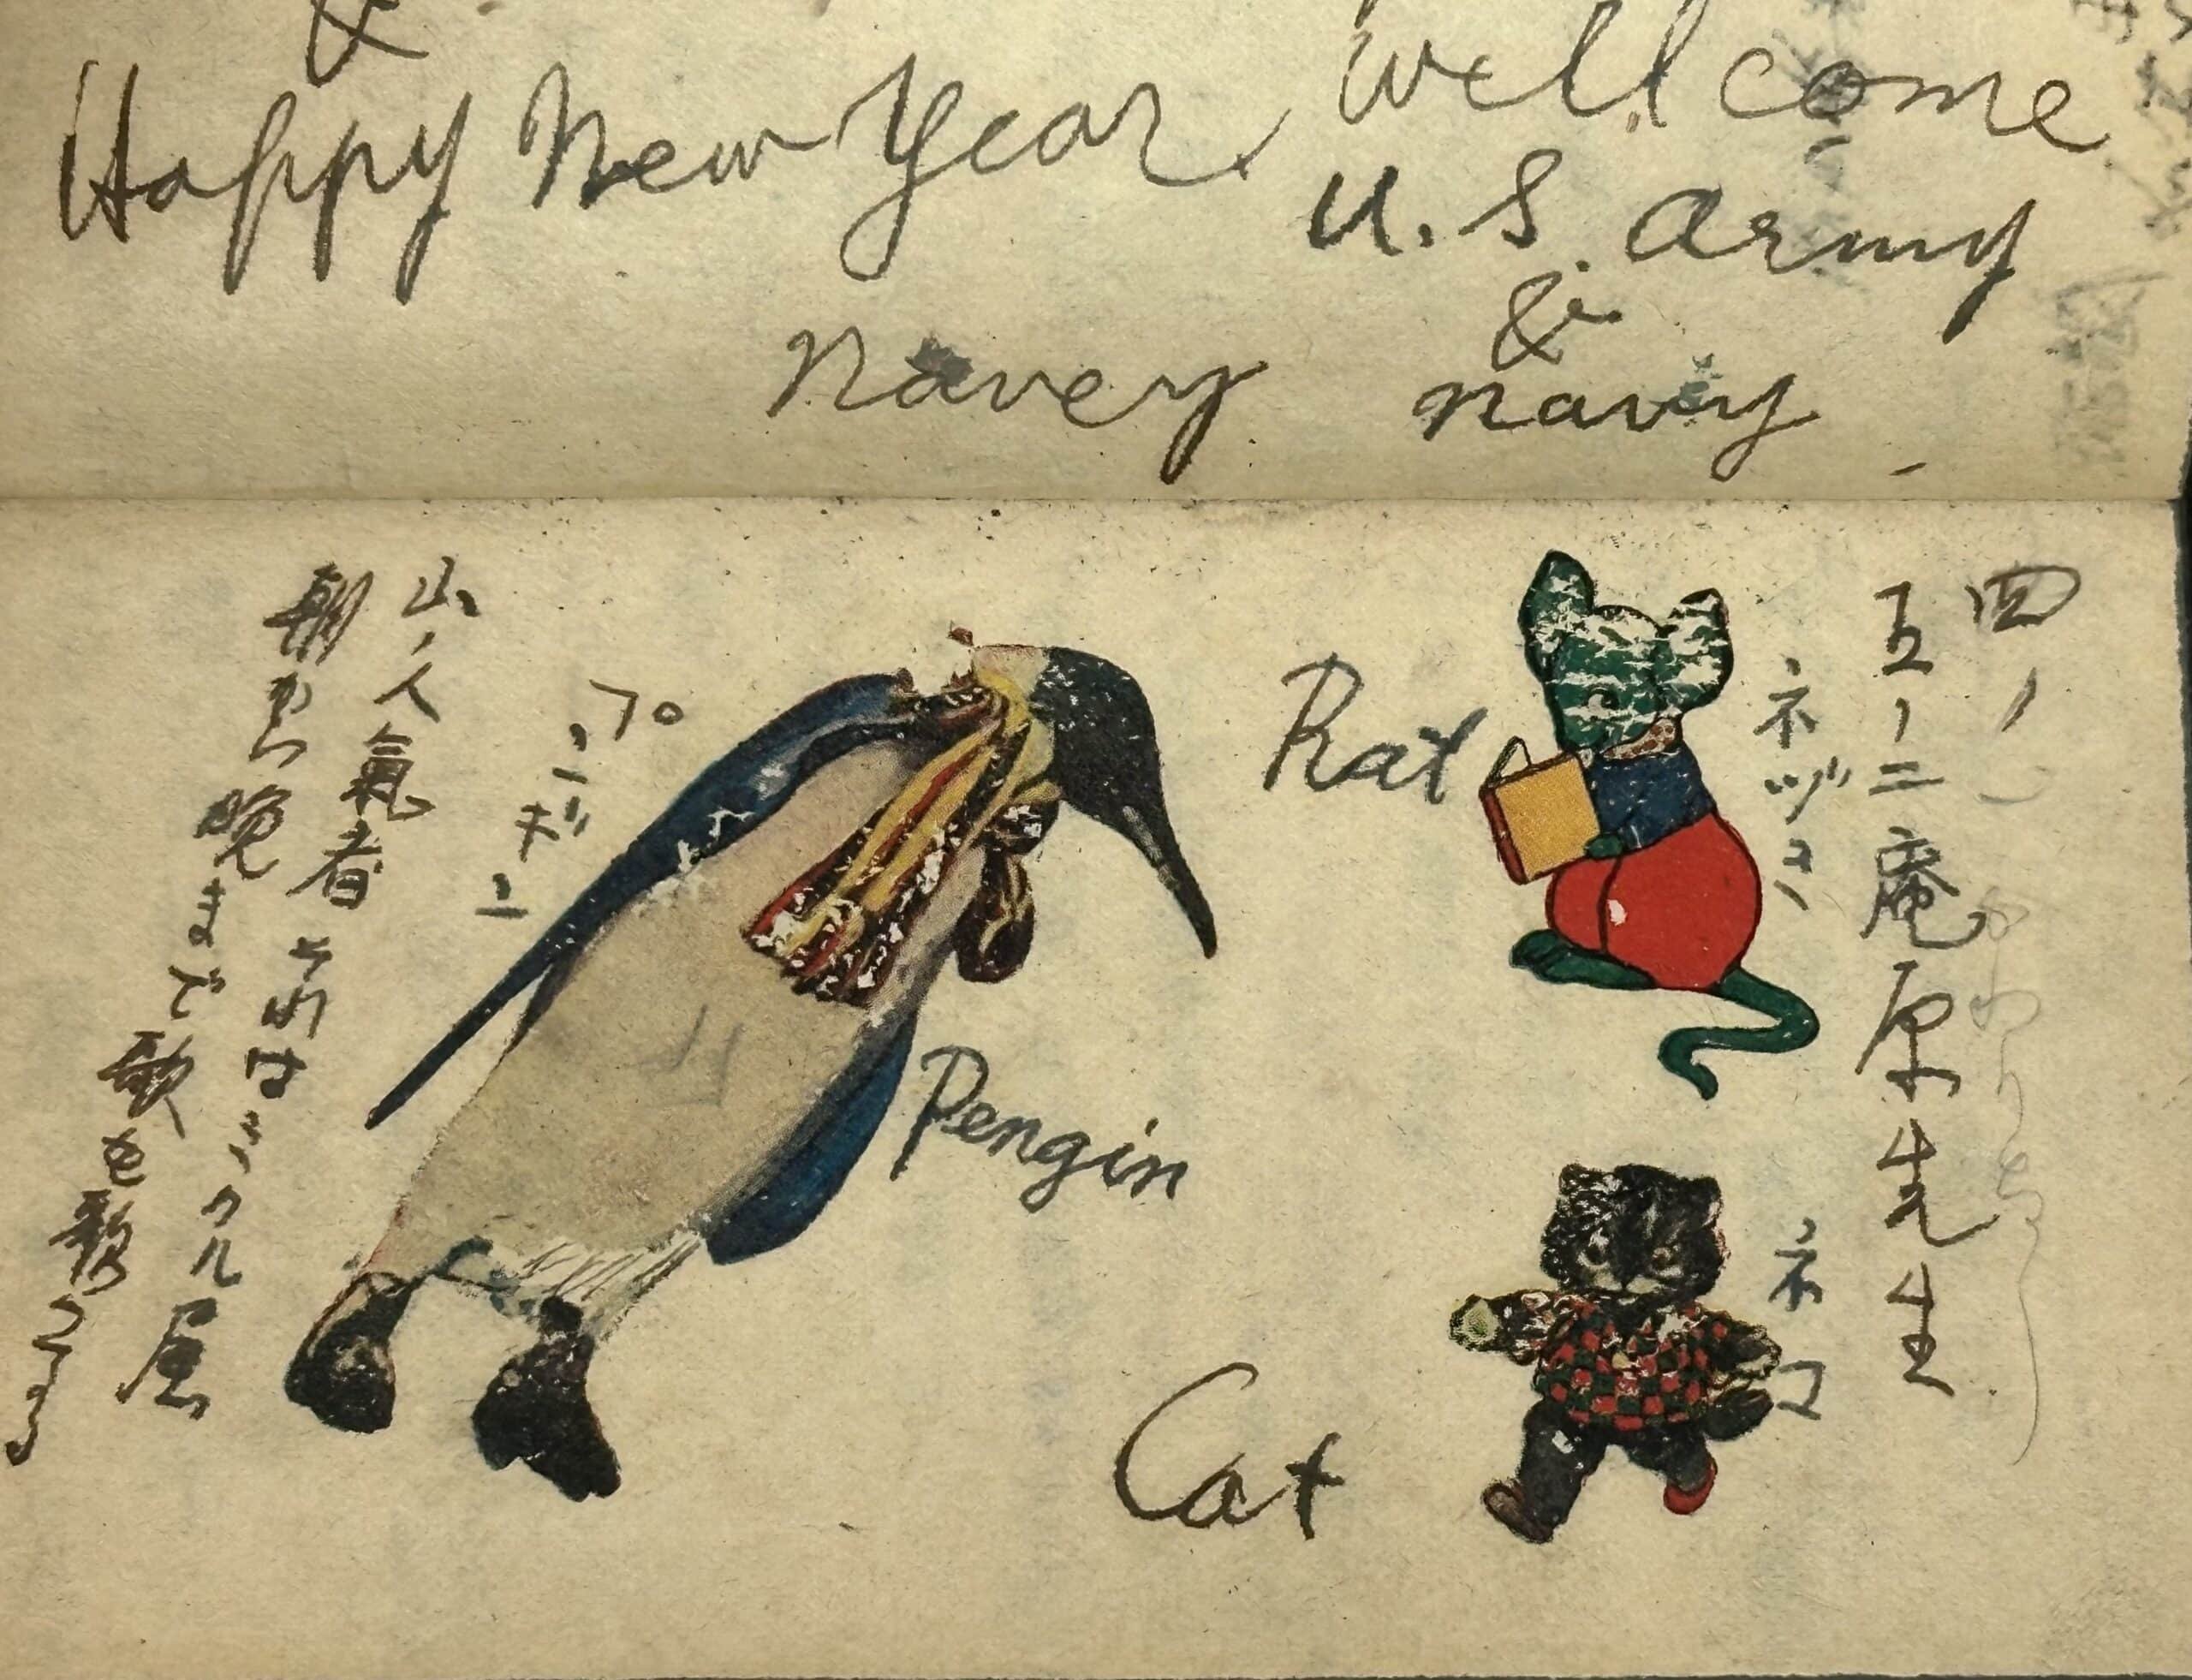 &
Happy New Year
Wellcome
U.S. Army
&
Navey
navy
四ノ二
五ノ二 庵原先生
ネヅミ
Rat
ネコ
Cat
Pengin
山ノ人氣者 それはミルク屋
朝から晩まで 歌を歌